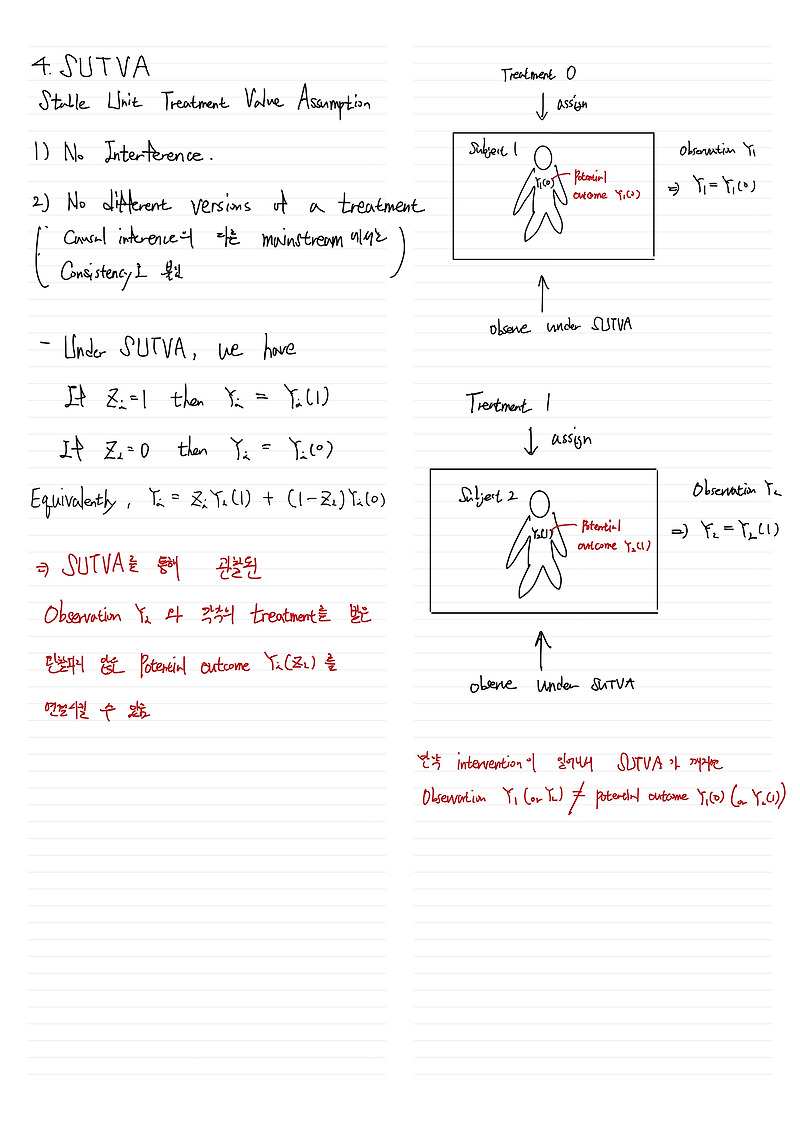 4. SUTVA
Stable Unit Treatment Value Assumption
1) No Interference.
2) No different versions of a treatment
( Causal inference의 다른 mainstream 에서는
Consistency로 불림 )
- Under SUTVA, we have
If Zᵢ=1 then Yᵢ = Yᵢ(1)
If Zᵢ=0 then Yᵢ = Yᵢ(0)
Equivalently, Yᵢ = ZᵢYᵢ(1) + (1-Zᵢ)Yᵢ(0)
⇒ SUTVA를 통해 관찰된
Observation Yᵢ 와 각각의 treatment를 받은
관찰되지 않은 Potential outcome Yᵢ(Zᵢ) 를
연결시킬 수 있음
Treatment 0
↓ assign
Subject 1
Y₁(0)
Potential
outcome Y₁(0)
Observation Y₁
⇒ Y₁=Y₁(0)
↑
observe under SUTVA
Treatment 1
↓ assign
Subject 2
Y₂(1)
Potential
outcome Y₂(1)
Observation Y₂
⇒ Y₂=Y₂(1)
↑
observe under SUTVA
만약 intervention이 일어나서 SUTVA가 깨지면
Observation Y₁ (or Y₂) ≠ potential outcome Y₁(0) (or Y₂(1))